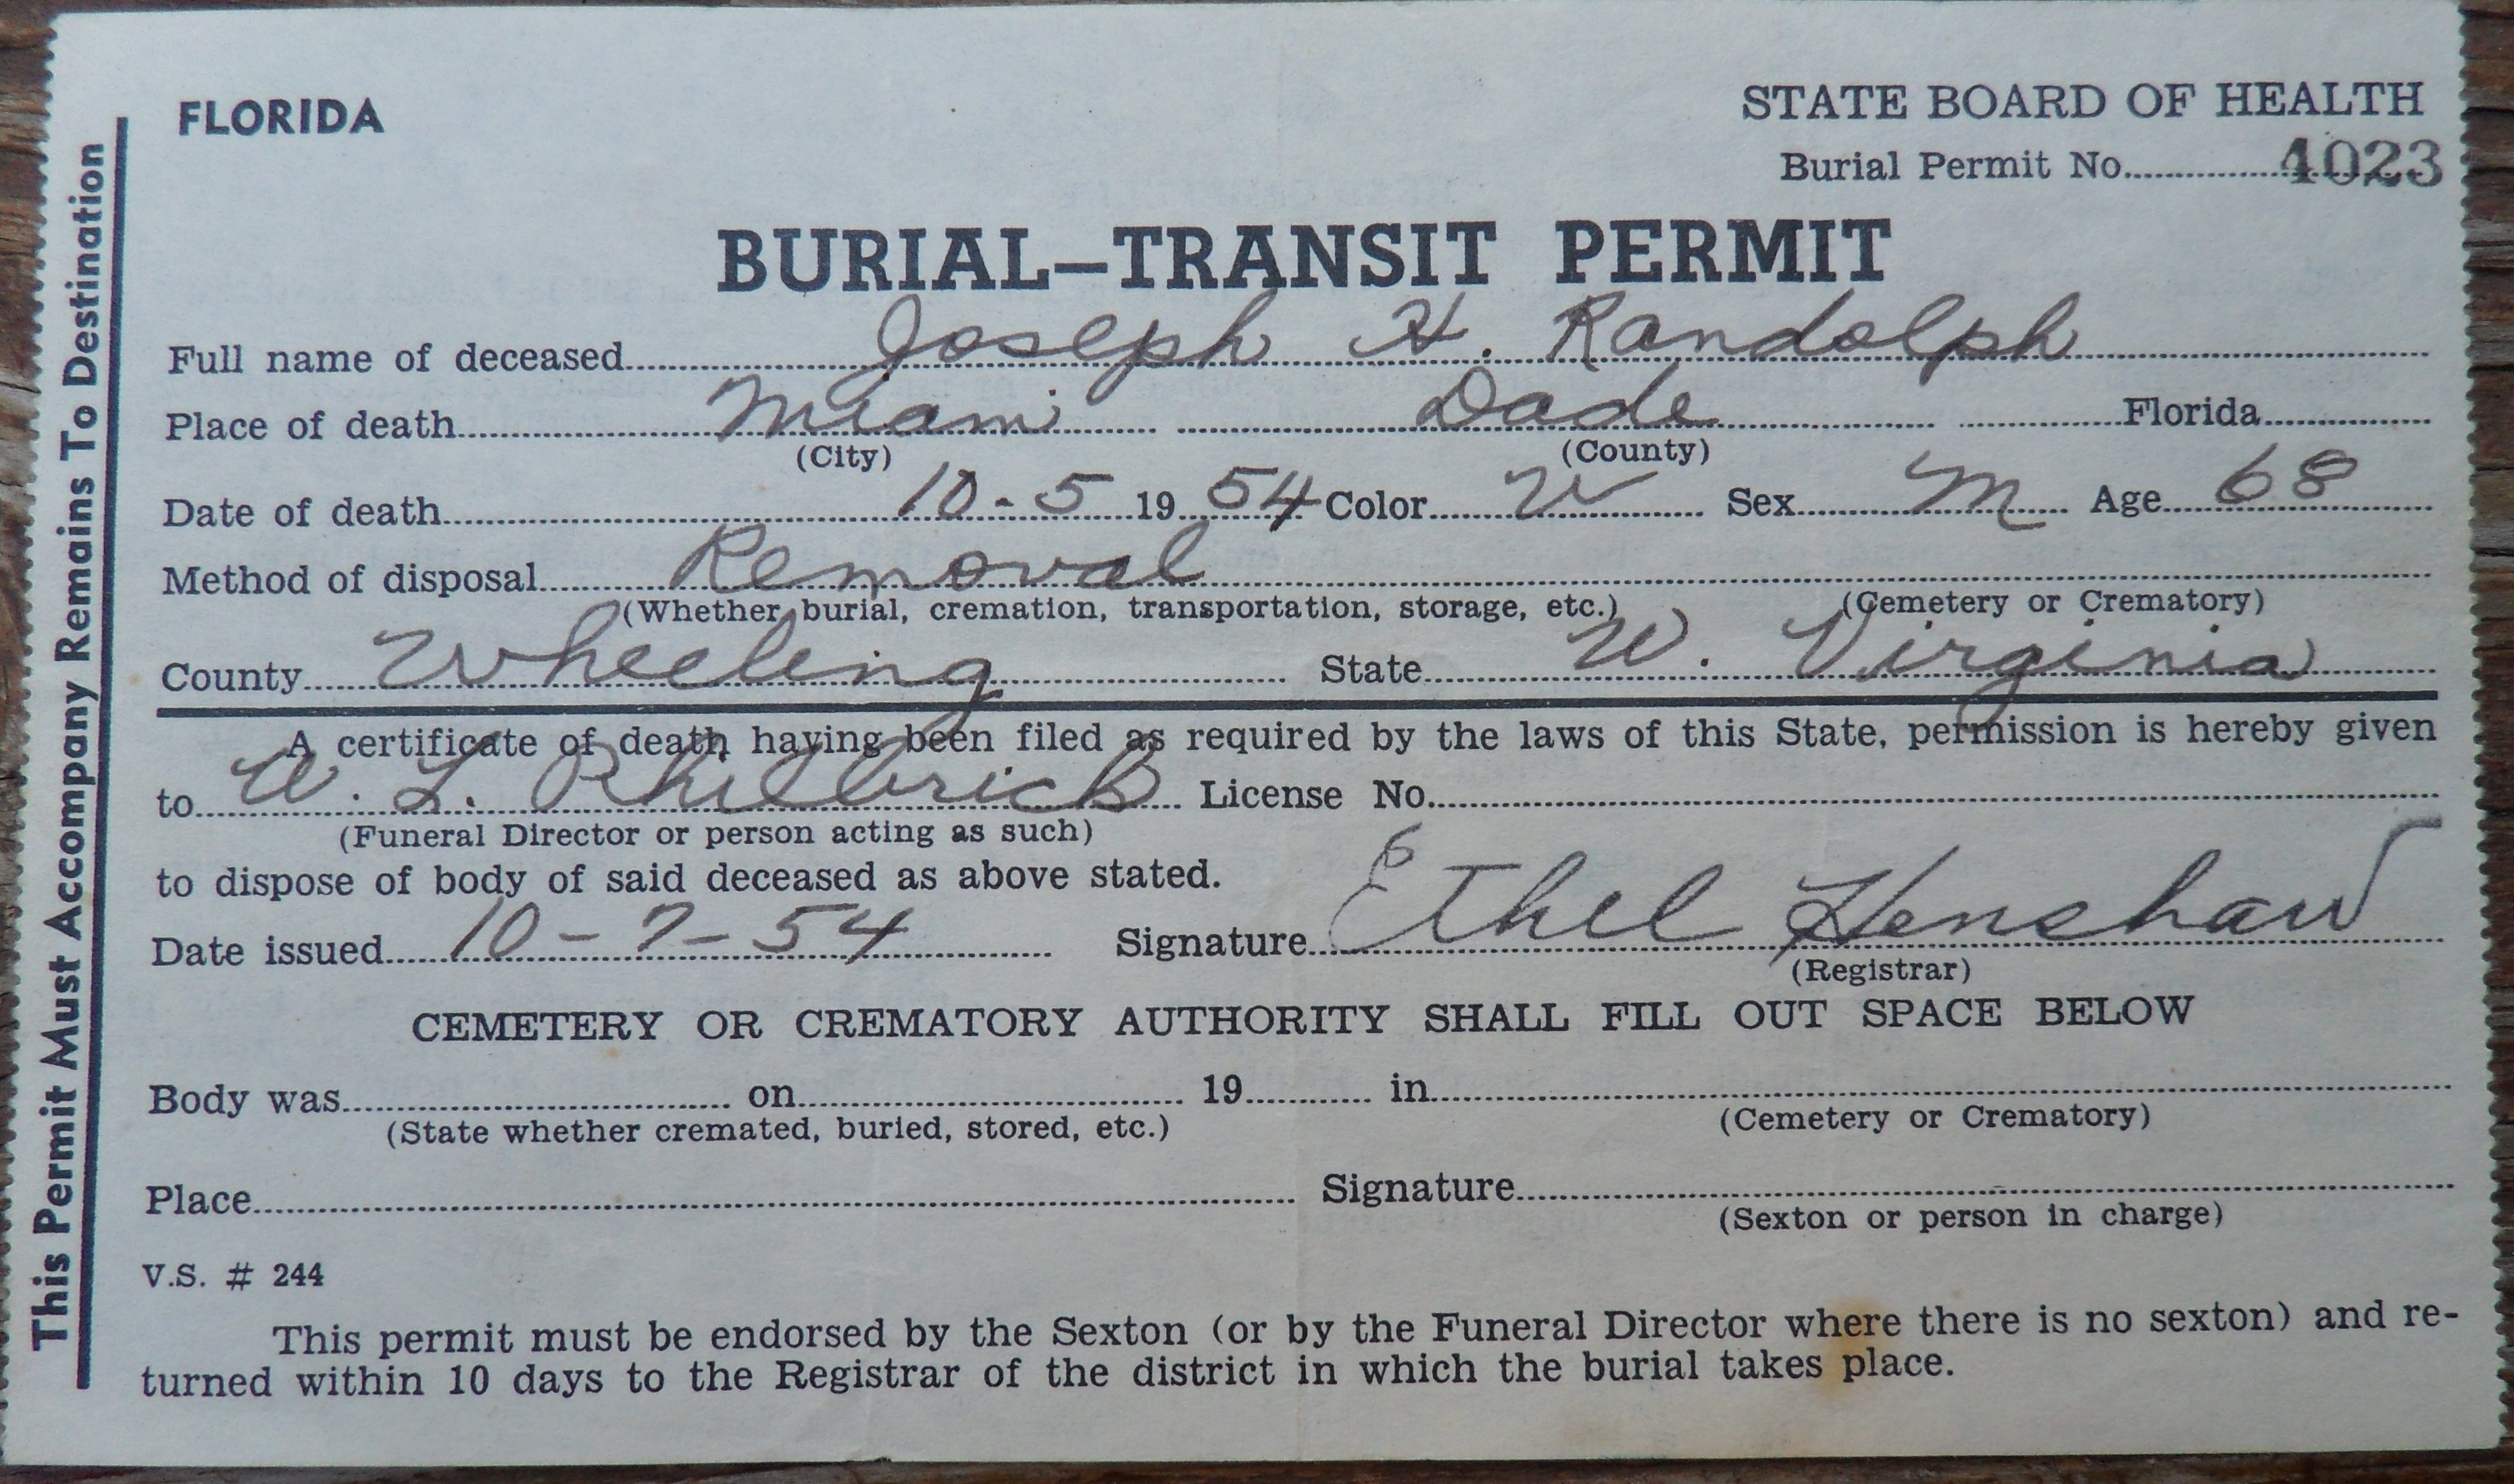 FLORIDA
STATE BOARD OF HEALTH
Burial Permit No. 4023
BURIAL—TRANSIT PERMIT
Full name of deceased Joseph H. Randolph
Place of death Miami Dade Florida
(City) (County)
Date of death 10-5 19 54 Color W Sex M Age 68
Method of disposal Removal
(Whether burial, cremation, transportation, storage, etc.) (Cemetery or Crematory)
County Wheeling State W. Virginia
A certificate of death having been filed as required by the laws of this State, permission is hereby given
to W. L. Philbrick License No.
(Funeral Director or person acting as such)
to dispose of body of said deceased as above stated.
Date issued 10-7-54 Signature Ethel Henshaw
(Registrar)
CEMETERY OR CREMATORY AUTHORITY SHALL FILL OUT SPACE BELOW
Body was on 19 in
(State whether cremated, buried, stored, etc.) (Cemetery or Crematory)
Place Signature
(Sexton or person in charge)
V.S. # 244
This permit must be endorsed by the Sexton (or by the Funeral Director where there is no sexton) and re-
turned within 10 days to the Registrar of the district in which the burial takes place.
This Permit Must Accompany Remains To Destination